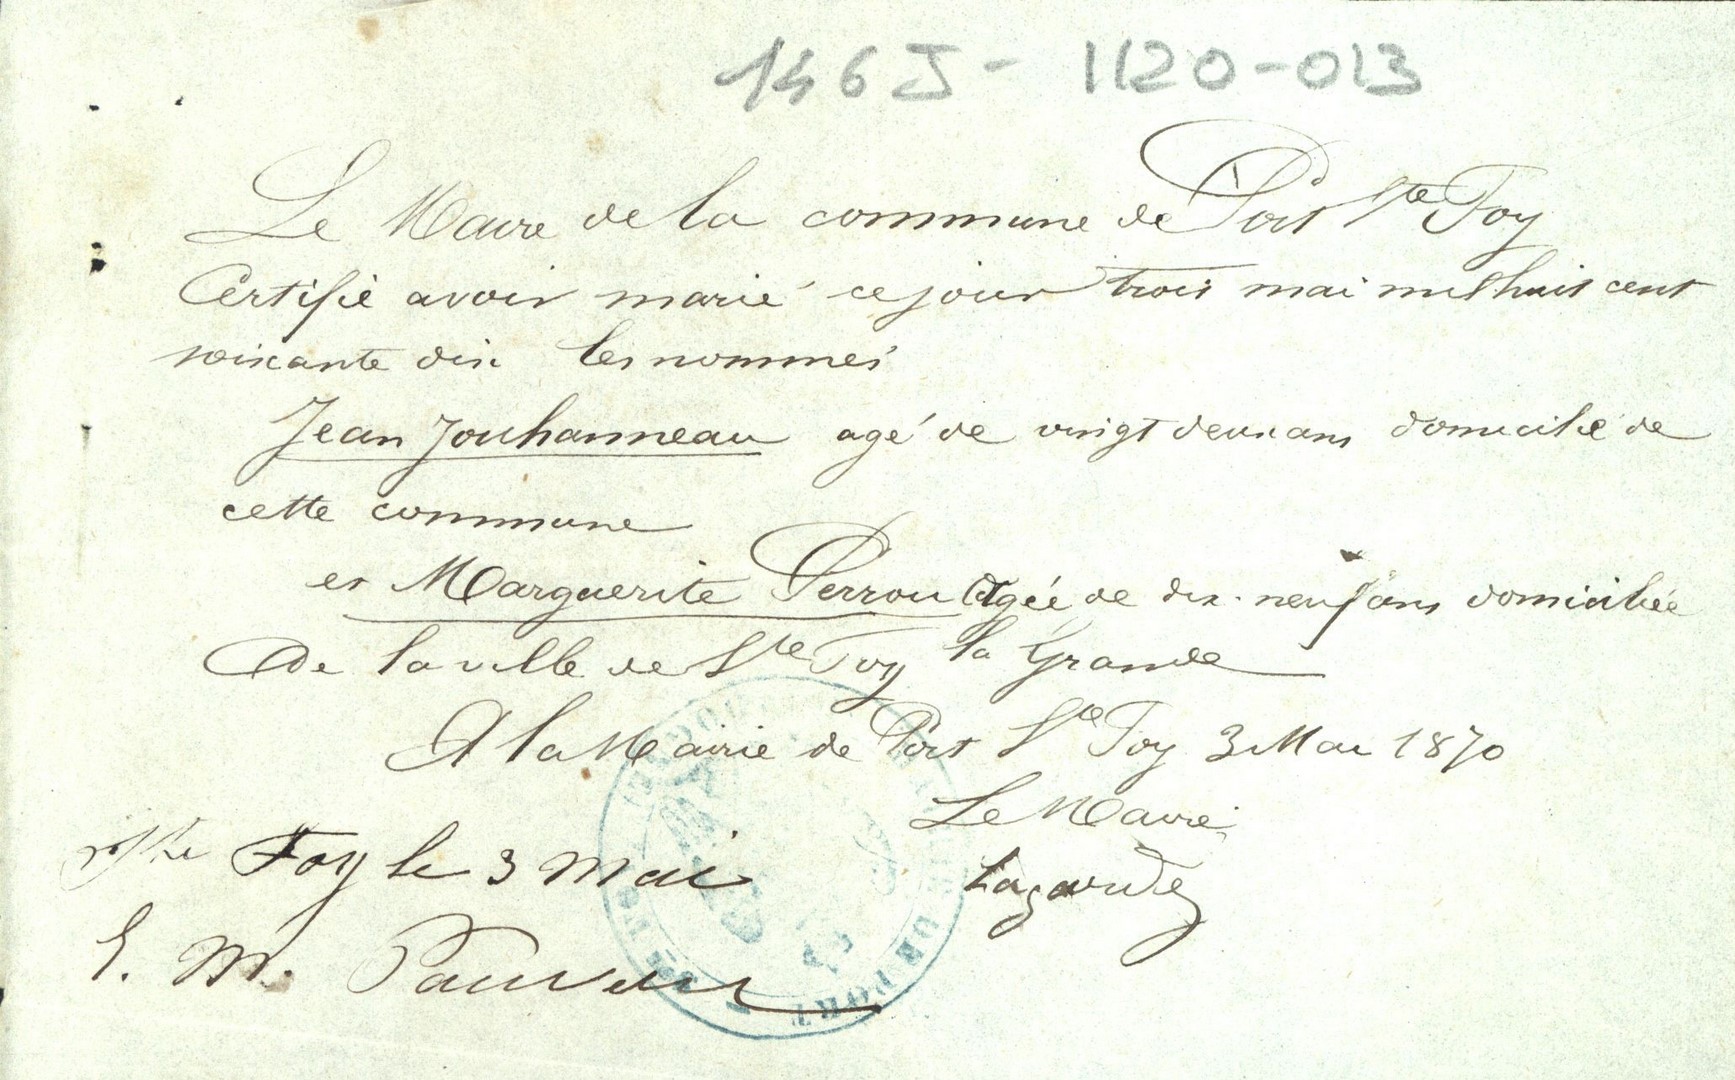 146 J - 1120-013
Le Maire de la commune de Port Ste Foy
Certifie avoir marié ce jour trois mai mil huit cent
soixante dix les nommés
Jean Jouhanneau agé de vingt deux ans domicilié de
cette commune
et Marguerite Perrou Agée de dix-neuf ans domiciliée
De la ville de Ste Foy la Grande
A la Mairie de Port Ste Foy 3 Mai 1870
Le Maire
Lagarde
Ste Foy le 3 mai
E. M.
DE PORT